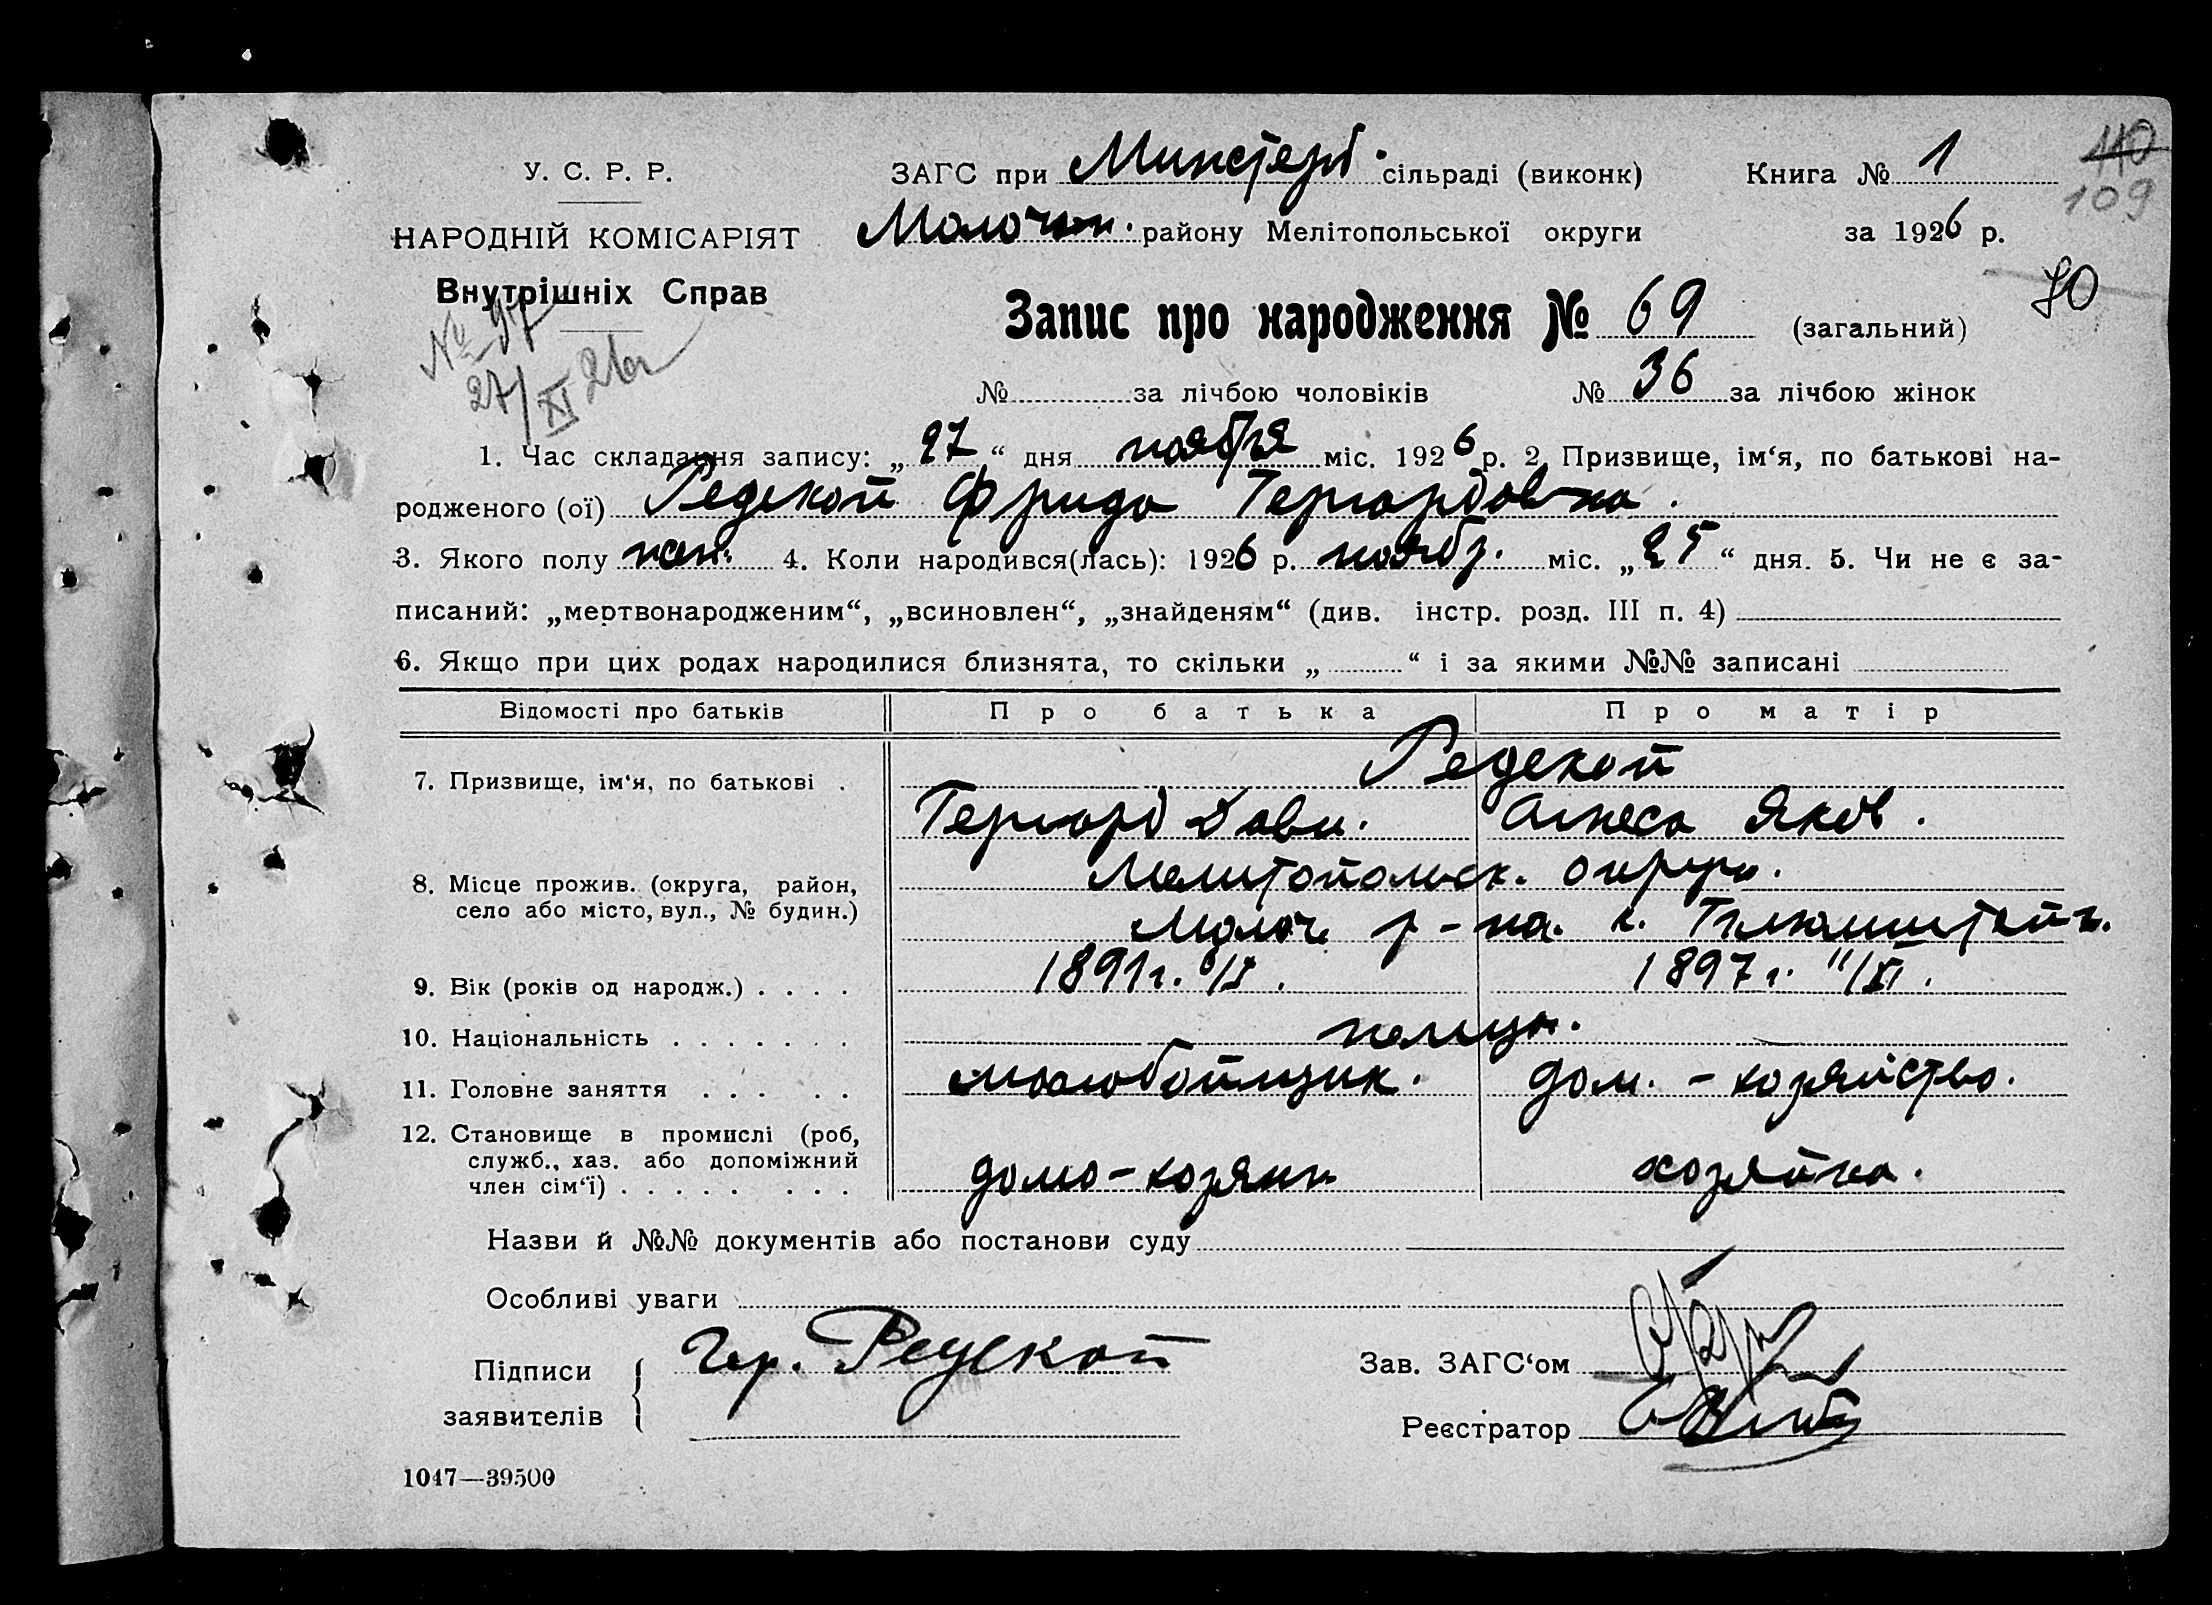 У. С. Р. Р.
НАРОДНІЙ КОМІСАРІЯТ
Внутрішніх Справ
№ 97
27/XI 26г
ЗАГС при Мунстерб. сільраді (виконк)
Книга № 1
110
109
Молочан. району Мелітопольської округи
за 1926 р.
70
Запис про народження № 69 (загальний)
№ за лічбою чоловіків № 36 за лічбою жінок
1. Час складання запису: „27“ дня ноября міс. 1926 р. 2. Призвище, ім‘я, по батькові на-
родженого (ої) Редекоп Фрида Гергардовна.
3. Якого полу жен. 4. Коли народився(лась): 1926 р. ноябр. міс. „25“ дня. 5. Чи не є за-
писаний: „мертвонародженим“, „всиновлен“, „знайденям“ (див. інстр. розд. III п. 4)
6. Якщо при цих родах народилися близнята, то скільки „ “ і за якими №№ записані
Відомості про батьків Про батька Про матір
Редекоп
7. Призвище, ім‘я, по батькові .
Гергард Дави. Агнеса Яков.
Мелитопольск. округа.
8. Місце прожив. (округа, район,
село або місто, вул., № будин.)
Молоч. р-на. к.
9. Вік (років од народж.) . . . . 1891г. 1897г. 11/XI.
10. Національність . . . . . . . немцы.
11. Головне заняття . . . . . маслобойщик. дом. - хозяйство.
12. Становище в промислі (роб,
служб., хаз. або допоміжний
член сім‘ї) . . . . . . . . домо-хозяин хозяйка.
Назви й №№ документів або постанови суду
Особливі уваги
Підписи
заявителів
Гер. Редекоп
Зав. ЗАГС‘ом
Реєстратор
1047—39500